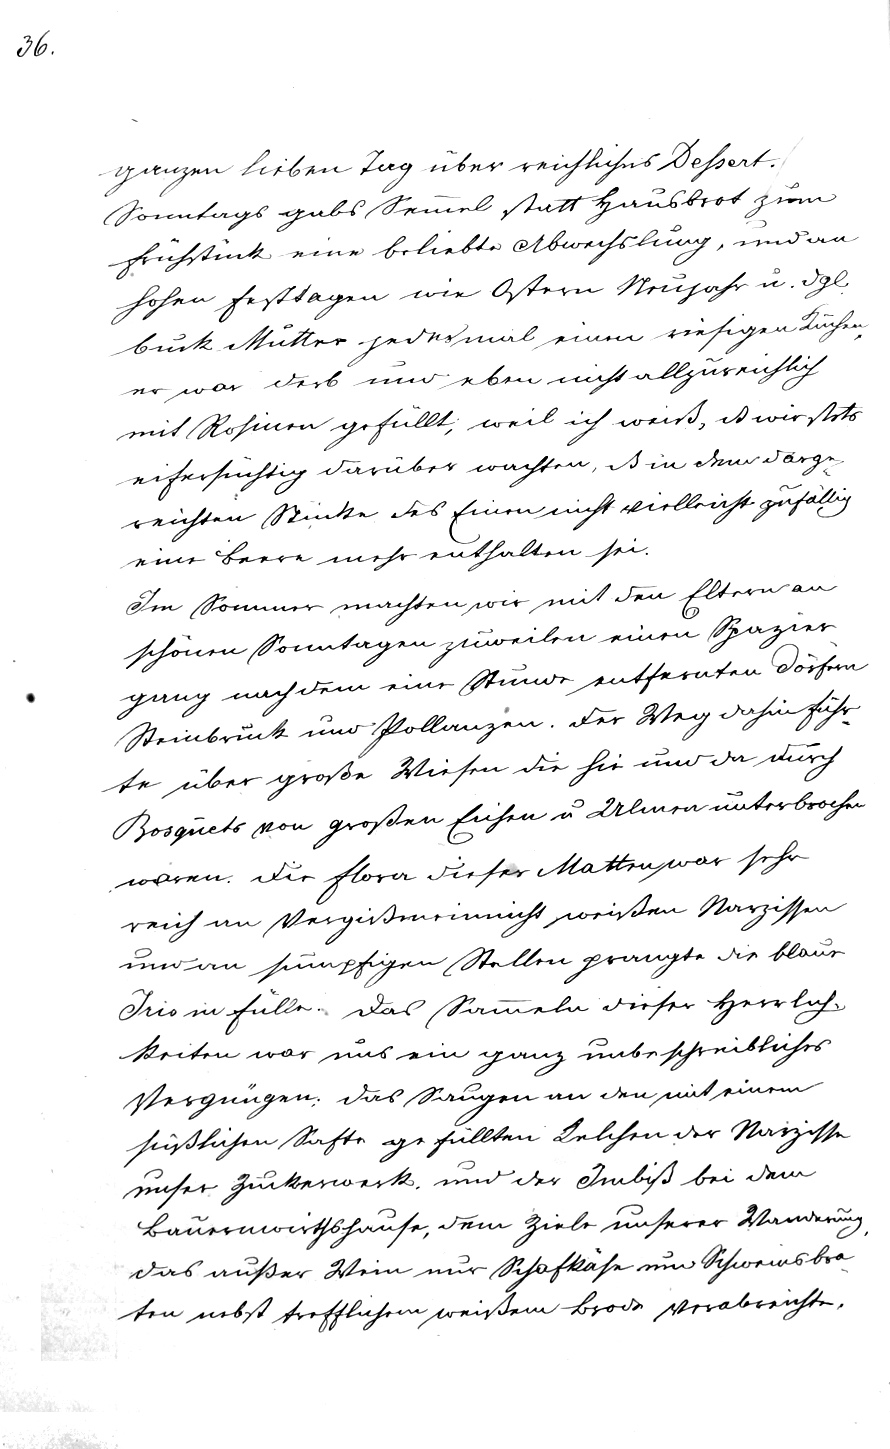 36.
ganzen lieben Tag über reichliches Dessert.
Sonntags gabs Sem̅el statt Hausbrot zum
Frühstück eine beliebte Abwechslung, und an
hohen Festtagen wie Ostern Neujahr u. dgl.
buck Mutter jedesmal einen riesigen Kuchen,
er war derb und eben nicht allzureichlich
mit Rosinen gefüllt, weil ich weiß, ß wir stets
eifersüchtig darüber wachten, ß in dem darge-
reichten Stücke des Einen nicht vielleicht zufällig
eine Beere mehr enthalten sei.
Im Sommer machten wir mit den Eltern an
schönen Sonntagen zuweilen einen Spazier
gang nach dem eine Stunde entfernten Dörfern
Steinbruck und Pollanzen. Der Weg dahin führ-
te über große Wiesen die hie und da durch
Bosquets von großen Eichen u Ulmen unterbrochen
waren. Die Flora dieser Matten war sehr
reich an Vergißmeinnicht weißen Narzissen
und an sumpfigen Stellen prangte die blaue
Iris in Fülle. Das Sam̅eln dieser Herrlich-
keiten war uns ein ganz unbeschreibliches
Vergnügen; das Saugen an den mit einem
süßlichen Safte gefüllten Kelchen der Narzisse
unser Zuckerwerk, und der Imbiß bei dem
Bauernwirthshause, dem Ziele unserer Wanderung,
das außer Wein nur Schafkäse und Schweinsbra-
ten nebst trefflichem weißem Brode verabreichte,